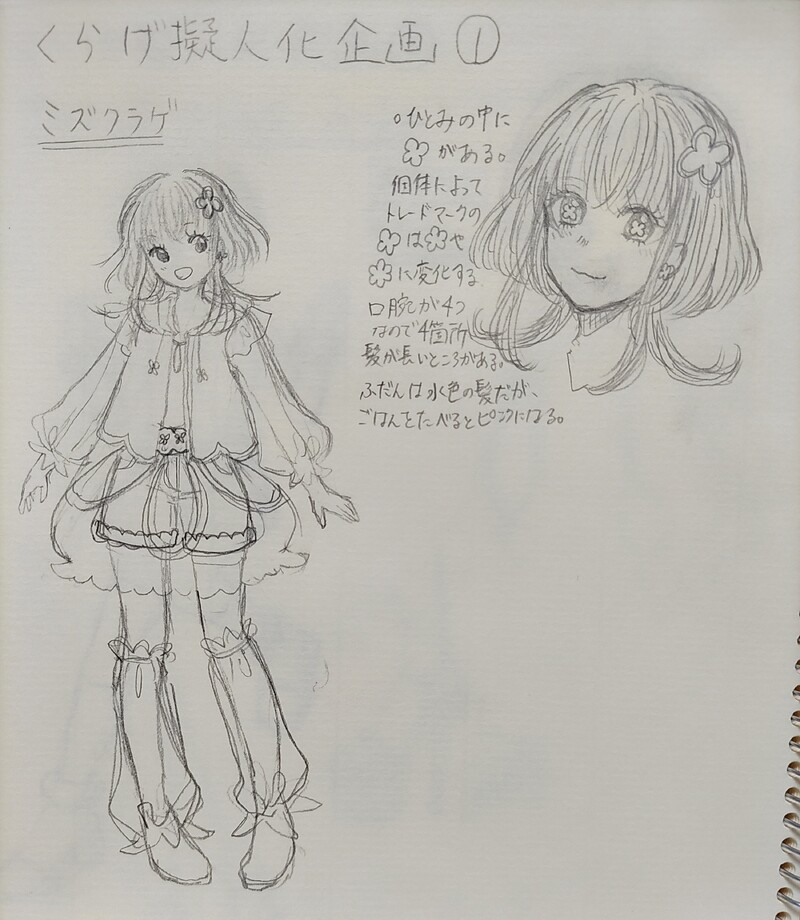 くらげ擬人化企画①
ミズクラゲ
○ひとみの中に
がある。
個体によって
トレードマークの
はや
に変化する
口腕が4つ
なので4箇所
髪が長いところがある。
ふだんは水色の髪だが、
ごはんをたべるとピンクになる。